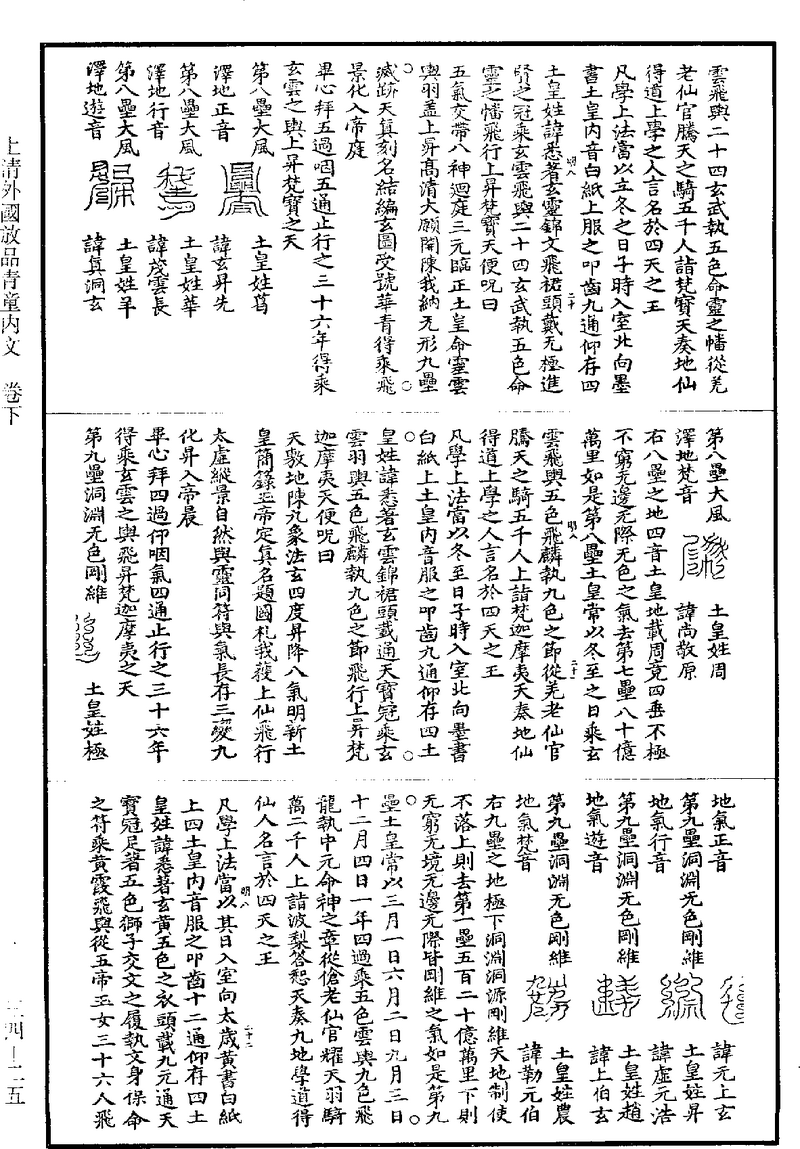 雲飛輿二十四玄武執五色命靈之幡從羌
老仙官騰天之騎五千人詣梵寶天奏地仙
得道上學之人言名於四天之王
凡學上法當以立冬之日子時入室北向墨
書土皇內音白紙上服之叩齒九通仰存四
土皇姓諱悉著玄靈錦文飛裙頭戴无極進
賢之冠乘玄雲飛輿二十四玄武執五色命
靈之幡飛行上昇梵寶天便呪曰
五氣交帶八神迴庭三元臨正土皇命靈雲
輿羽蓋上昇高清大願開陳我納无形九壘
滅跡天真刻名結編玄圖受號華青得乘飛
景化入帝庭
畢心拜五過咽五通止行之三十六年得乘
玄雲之輿上昇梵寶之天
第八壘大風
澤地正音
土皇姓葛
諱玄昇先
第八壘大風
澤地行音
土皇姓華
諱茂雲長
第八壘大風
澤地遊音
土皇姓羊
諱真洞玄
第八壘大風
澤地梵音
土皇姓周
諱尚敬原
右八壘之地四音土皇地載周竟四垂不極
不窮无邊无際无色之氣去第七壘八十億
萬里如是第八壘土皇常以冬至之日乘玄
雲飛輿五色飛麟執九色之節從羌老仙官
騰天之騎五千人上詣梵迦摩夷天奏地仙
得道上學之人言名於四天之王
凡學上法當以冬至日子時入室北向墨書
白紙上土皇內音服之叩齒九通仰存四土
皇姓諱悉著玄雲錦裙頭戴通天寶冠乘玄
雲羽輿五色飛麟執九色之節飛行上昇梵
迦摩夷天便呪曰
天敷地陳九象法玄四度昇降八氣明新土
皇簡錄五帝定真名題國札我獲上仙飛行
太虛縱景自然與靈同符與氣長存三變九
化昇入帝晨
畢心拜四過仰咽氣四通止行之三十六年
得乘玄雲之輿飛昇梵迦摩夷之天
第九壘洞淵无色剛維
地氣正音
土皇姓極
諱元上玄
第九壘洞淵无色剛維
地氣行音
土皇姓昇
諱虛元浩
第九壘洞淵无色剛維
地氣遊音
土皇姓趙
諱上伯玄
第九壘洞淵无色剛維
地氣梵音
土皇姓農
諱勒元伯
右九壘之地極下洞淵洞源剛維天地制使
不落上則去第一壘五百二十億萬里下則
无窮无境无邊无際皆剛維之氣如是第九
壘土皇常以三月一日六月二日九月三日
十二月四日一年四過乘五色雲輿九色飛
龍執中元命神之章從傖老仙官耀天羽騎
萬二千人上詣波梨答恕天奏九地學道得
仙人名言於四天之王
凡學上法當以其日入室向太歲黃書白紙
上四土皇內音服之叩齒十二通仰存四土
皇姓諱悉著玄黃五色之衣頭戴九元通天
寶冠足著五色獅子交文之履執文身保命
之符乘黃霞飛輿從五帝玉女三十六人飛
上清外國放品青童內文 卷下
三四—二五